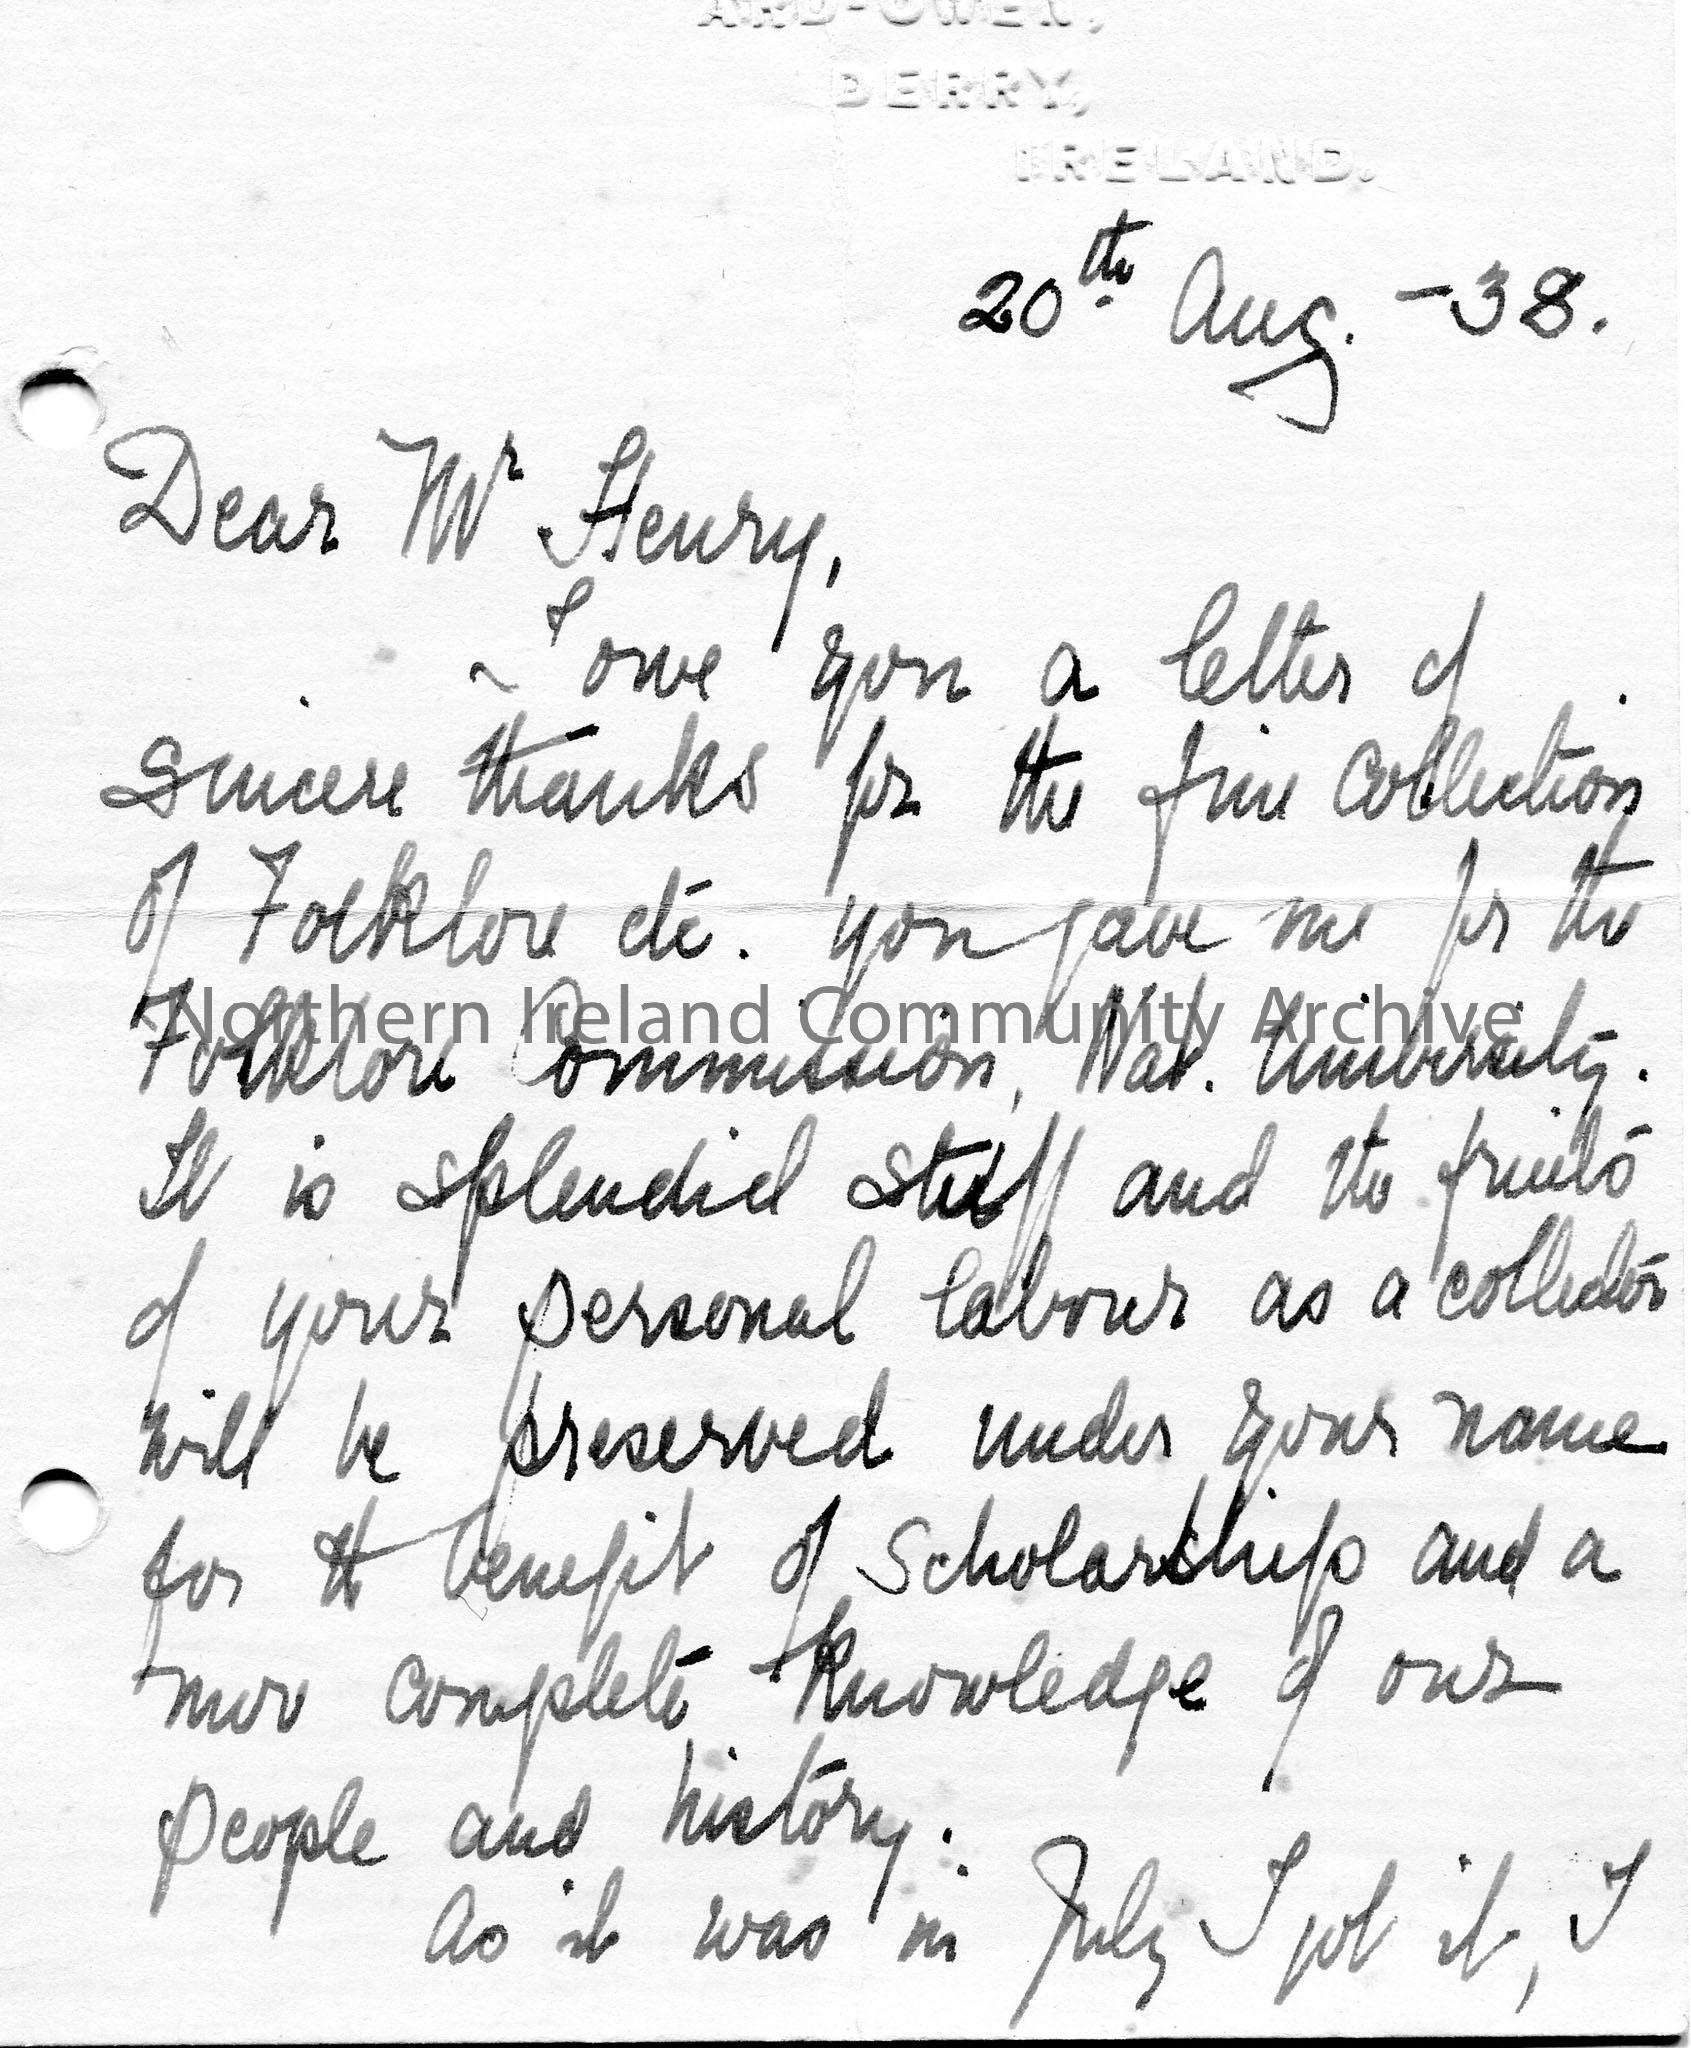 ARD-OWEN,
DERRY,
IRELAND.
20th Aug. -38.
Dear Mr Henry,
I owe you a letter of
sincere thanks for the fine collection
of Folklore etc. you gave me for the
Northern Ireland Community Archive
Folklore Commission, Nat. University.
It is splendid stuff and the fruits
of your personal labour as a collector
will be preserved under your name
for the benefit of Scholarship and a
more complete knowledge of our
people and history.
As it was in July I got it, I